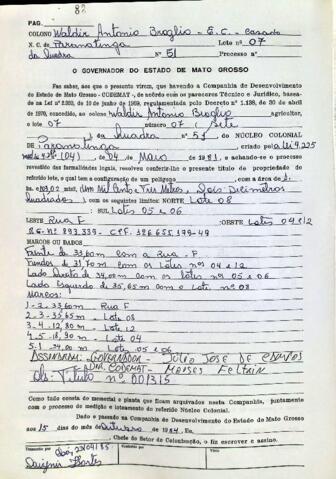 82
PAG.
COLONO Waldir Antonio Broglio - E.C. - Casado
N. C. de Paranatinga Lote nº 07
da Quadra Nº 51 Processo nº
O GOVERNADOR DO ESTADO DE MATO GROSSO
Faz saber, aos que a presente virem, que havendo a Companhia de Desenvolvimento
do Estado de Mato Grosso - CODEMAT -, de acôrdo com os pareceres Técnico e Jurídico, basea-
da na Lei nº de 10 de junho de 1969, regulamentada pelo Decreto n.º de 30 de abril
de 1970, concedido, ao colono Waldir Antonio Broglio agricultor,
o lote 07 07 / Sete
da Quadra nº 51 do NÚCLEO COLONIAL
de Paranatinga criado pela
(04) de 04 de Maio de 1981, e achando-se o processo
revestido das formalidades legais, resolveu conferir-lhe o presente título de propriedade do
referido lote, o qual tem a configuração de um polígono com a área de
Um Mil Cento e Três Metros, Dois Decímetros
Quadrados com os seguintes limites: NORTE Lote 08
SUL Lotes 05 e 06
LESTE Rua F OESTE Lotes 04 e 12
RG-Nº 893.339 - CPF. 326 655 179-49
MARCOS OU DADOS
Frente de 33,60m com a Rua - F
Fundos de 31,70m com os Lotes nºs 04 e 12
Lado Direito de 34,00m com os lotes nºs 05 e 06
Lado Esquerdo de 35,65m com o Lote nº 08
Marcos:
1-2-33,60m Rua F
2-3-35,65m - Lote 08
3-4-12,80m - Lote 12
4-5-18,90m - Lote 04
5-1-34,00m - Lotes 05 e 06
Assinaram: GOVERNADOR - JÚLIO JOSÉ DE CAMPOS
DIR. CODEMAT - MOISES FELTRIN
Obs: Título nº 001315
Como tudo consta do memorial e planta que ficam arquivados nesta Companhia, juntamente
com o processo de medição e loteamento do referido Núcleo Colonial.
Dado e passado na Companhia de Desenvolvimento do Estado de Mato Grosso
aos 15 dias do mês de Outubro de 1984. Eu,
Chefe do Setor de Colonização, o fiz escrever e assino.
23/04/85